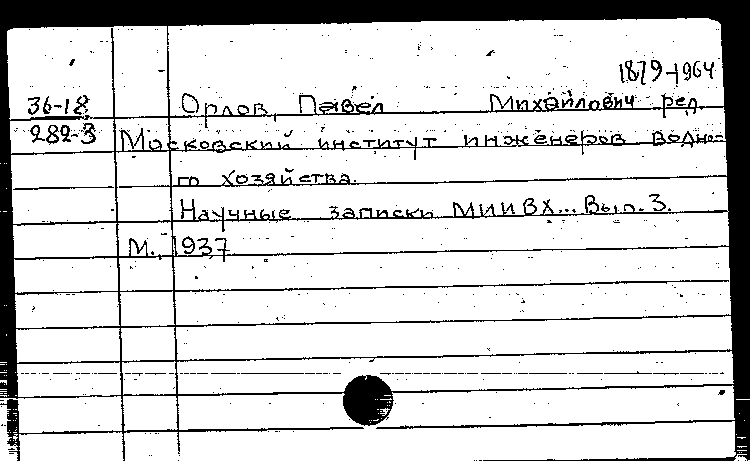 1879-1964
36-18 Орлов, Павел Михайлович ред.
282-3 Московский институт инженеров водно-
го хозяйства.
Научные записки МИИВХ... Вып. 3.
М., 1937